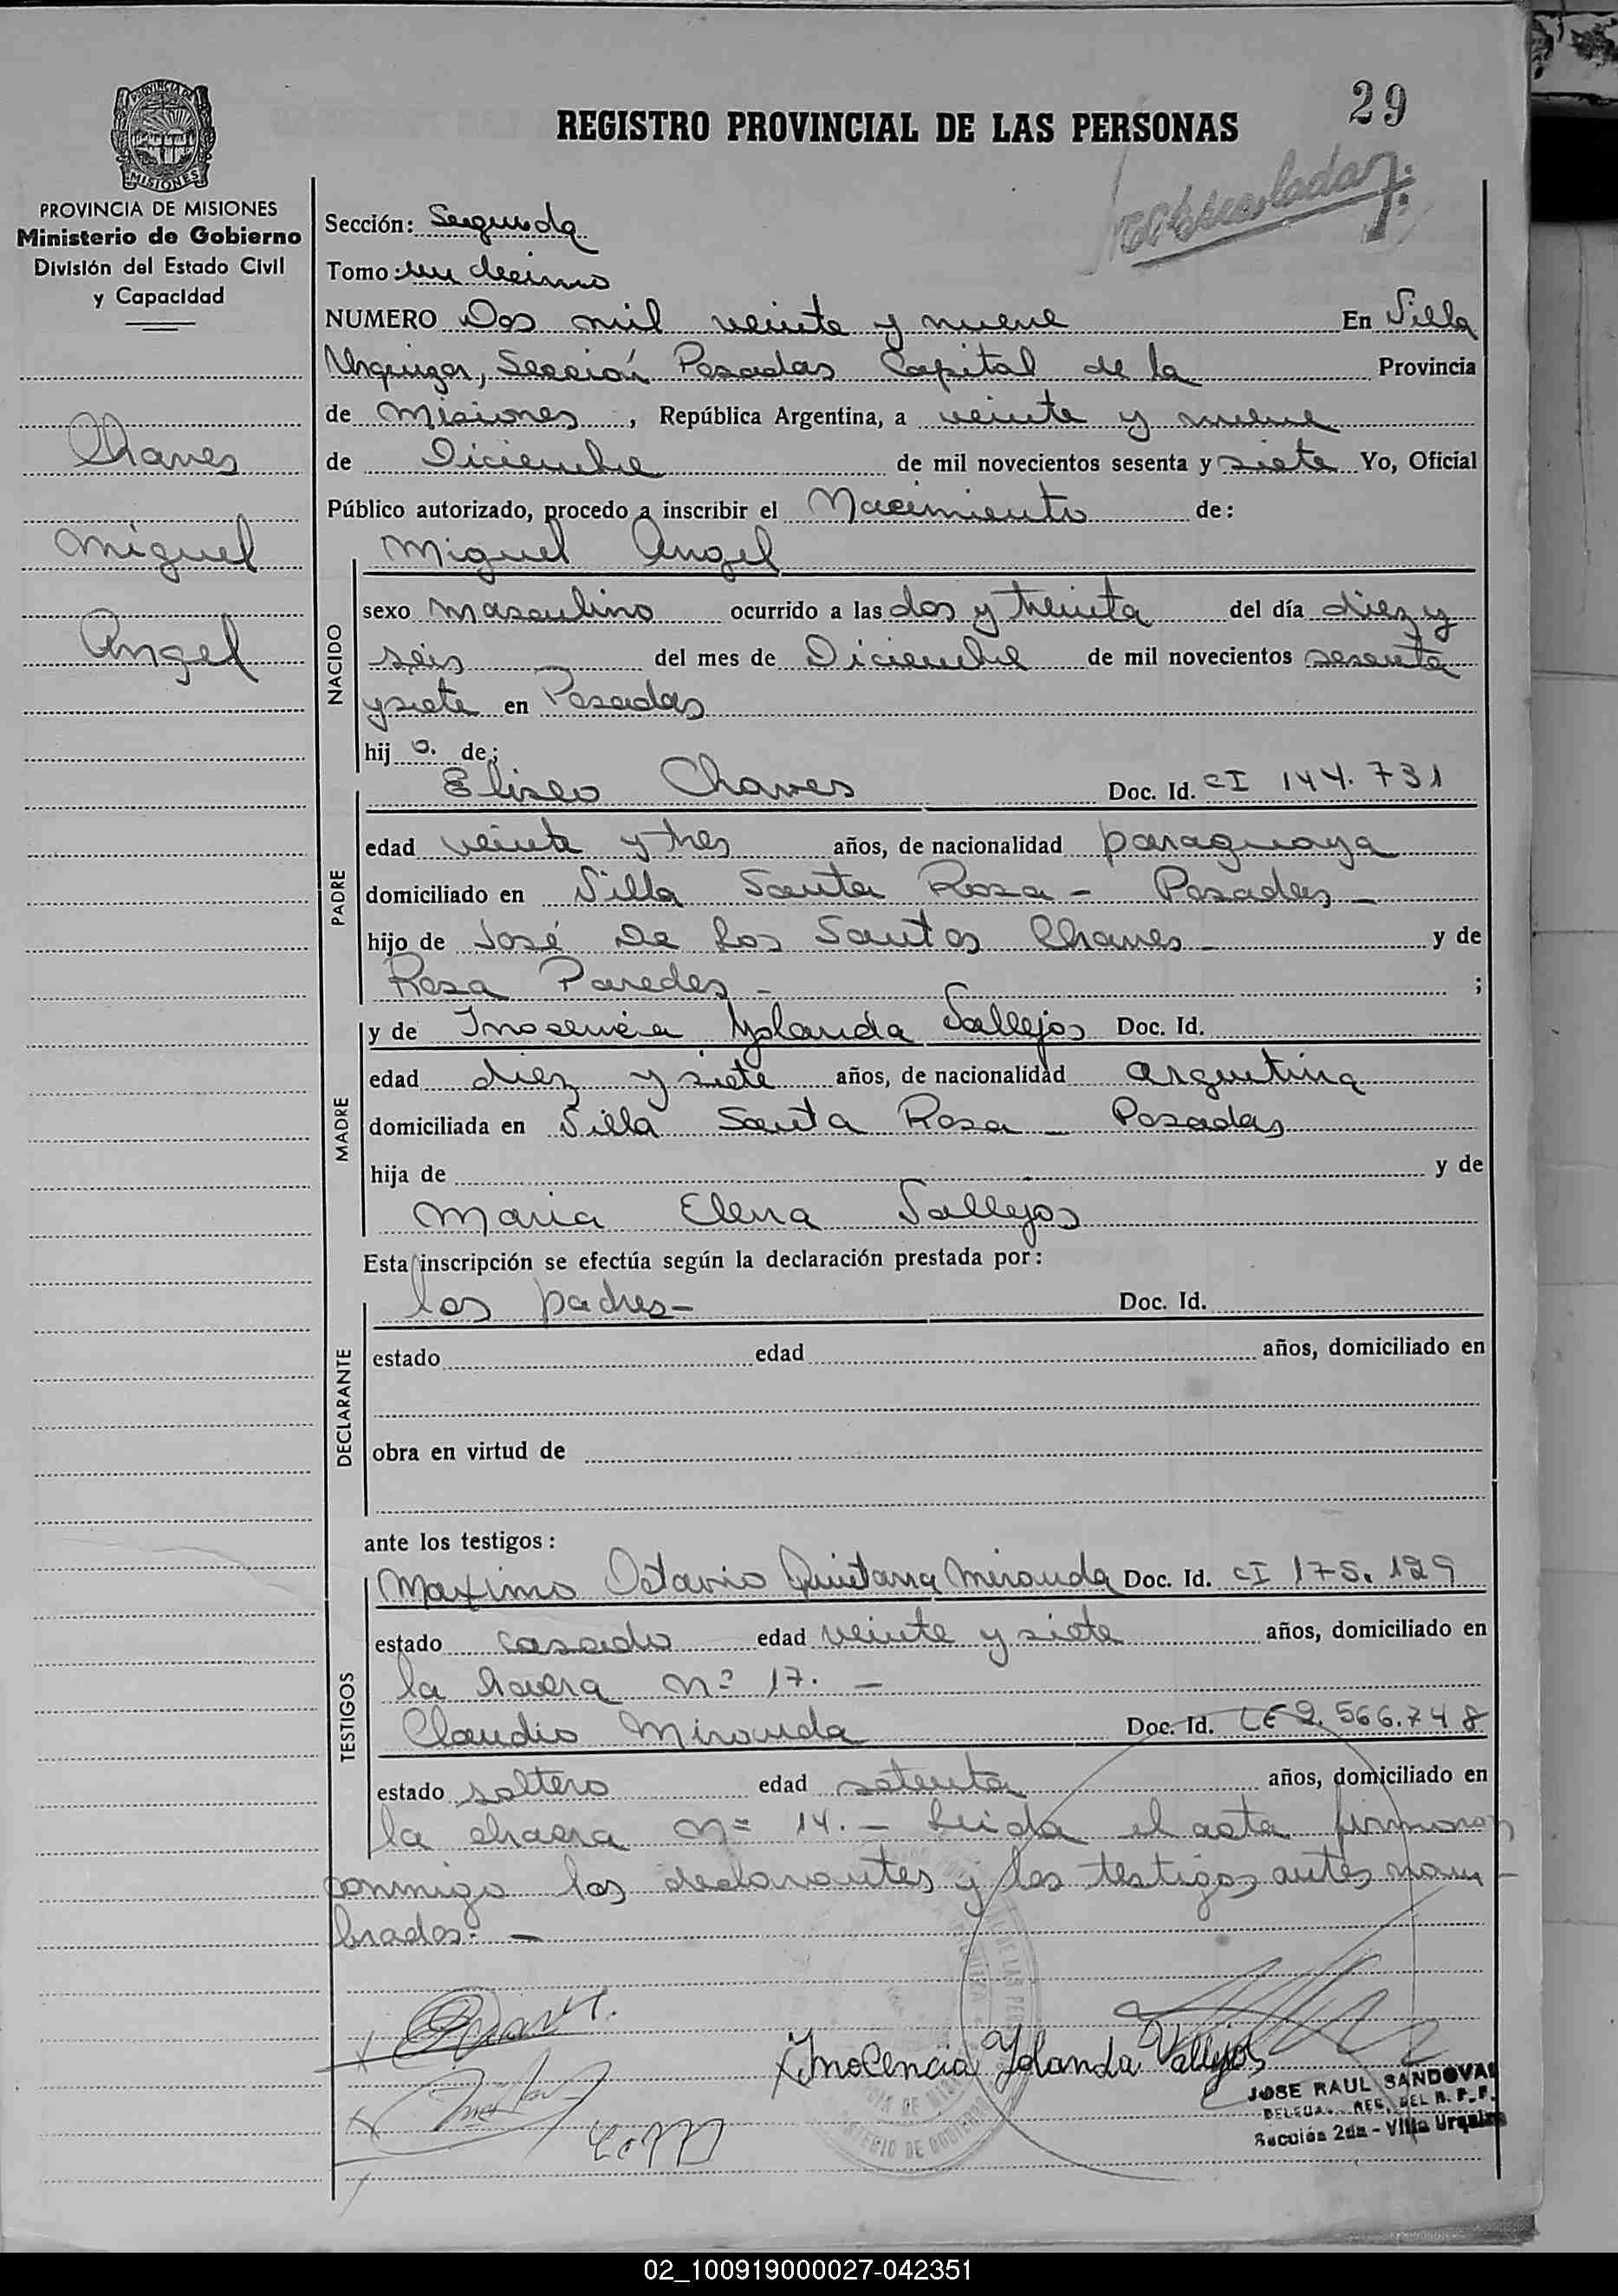 29
REGISTRO PROVINCIAL DE LAS PERSONAS
PROVINCIA DE MISIONES
Ministerio de Gobierno
División del Estado Civil
y Capacidad
Chaves
Miguel
Angel
Sección: Segunda
Tomo: un decimo
NUMERO Dos mil veinte y nueve En Villa
Urquiza, Sección Posadas Capital de la Provincia
de Misiones, República Argentina, a veinte y nueve
de Diciembre de mil novecientos sesenta y siete Yo, Oficial
Público autorizado, procedo a inscribir el Nacimiento de:
Miguel Angel
NACIDO
sexo masculino ocurrido a las dos y treinta del día diez y
seis del mes de Diciembre de mil novecientos sesenta
y siete en Posadas
hijo. de:
PADRE
Eliseo Chaves Doc. Id. CI 144.731
edad veinte y tres años, de nacionalidad paraguaya
domiciliado en Villa Santa Rosa - Posadas -
hijo de José De los Santos Chaves - y de
Rosa Paredes - ;
MADRE
y de Inosencia Yolanda Vallejos Doc. Id.
edad diez y siete años, de nacionalidad argentina
domiciliada en Villa Santa Rosa - Posadas
hija de y de
Maria Elena Vallejos
Esta inscripción se efectúa según la declaración prestada por:
DECLARANTE
los padres- Doc. Id.
estado edad años, domiciliado en
obra en virtud de
ante los testigos:
TESTIGOS
Maximo Octavio Quintana Miranda Doc. Id. CI 175.129
estado casado edad veinte y siete años, domiciliado en
la hacra nº 17. -
Claudio Miranda Doc. Id. LE 2.566.748
estado soltero edad setenta años, domiciliado en
la chacra nº 14. - Leida el acta firmaron
conmigo los declarantes y los testigos antes nom-
brados. -
Inocencia Yolanda Vallejos
JOSE RAUL SANDOVAL
Sección 2da - Villa Urquiza
02_100919000027-042351